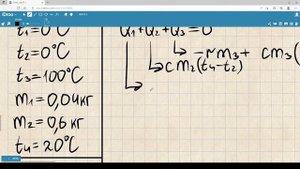 t₁=0°C
t₂=0°C
t₃=100°C
m₁=0,04кг
m₂=0,6кг
t₄=20°C
Q₁+Q₂+Q₃=0
-rm₃+ cm₃(
cm₂(t₄-t₂)